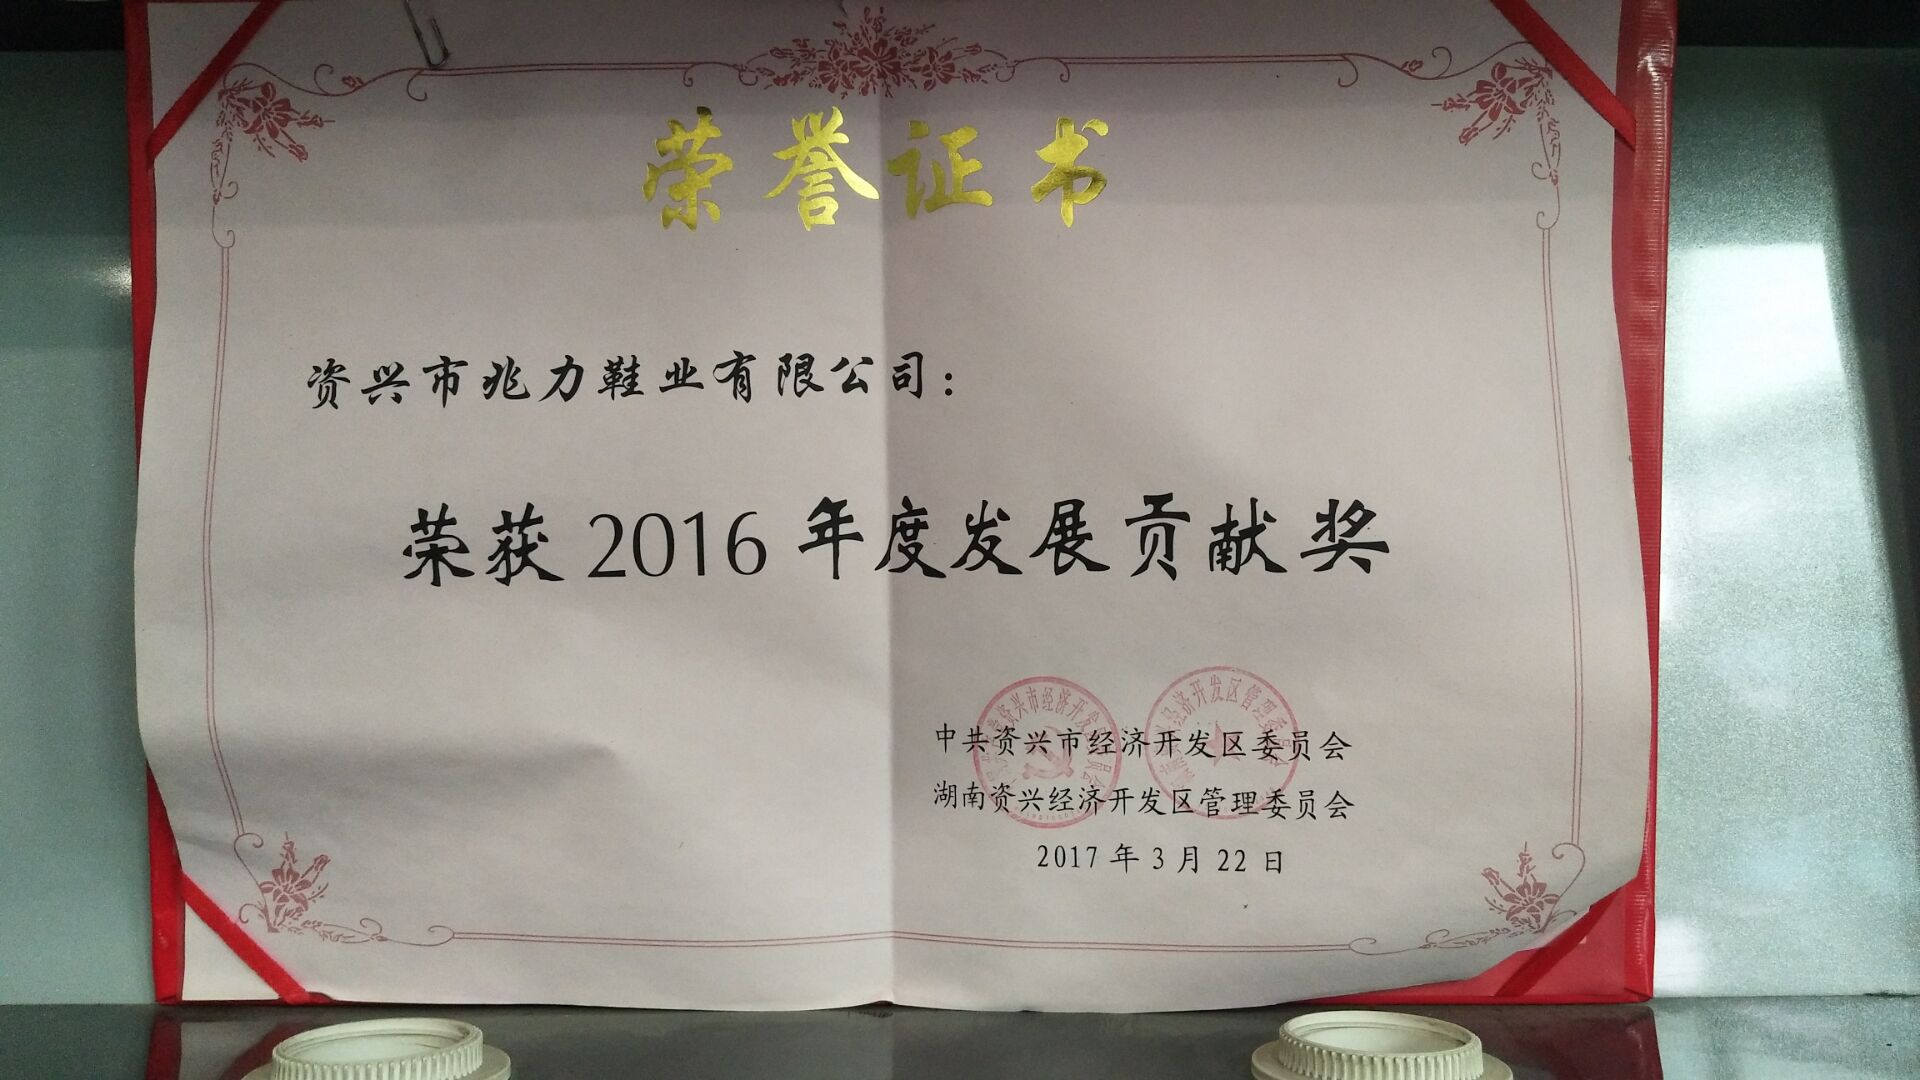 荣誉证书
资兴市兆力鞋业有限公司：
荣获2016年度发展贡献奖
中共资兴市经济开发区委员会
湖南资兴经济开发区管理委员会
2017年3月22日